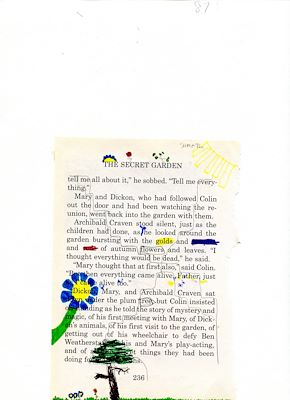 87
THE SECRET GARDEN
tell me all about it," he sobbed. "Tell me every-
thing."
Mary and Dickon, who had followed Colin
out the door and had been watching the re-
union, went back into the garden with them.
Archibald Craven stood silent, just as the
children had done, as he looked around the
garden bursting with the golds and
and of autumn flowers and leaves. "I
thought everything would be dead," he said.
"Mary thought that at first also," said Colin.
when everything came alive, Father, just
alive too."
Dickon, Mary, and Archibald Craven sat
under the plum tree, but Colin insisted
standing as he told the story of mystery and
magic, of his first meeting with Mary, of Dick-
on's animals, of his first visit to the garden, of
getting out of his wheelchair to defy Ben
Weatherstaff, his and Mary's play-acting,
and of things they had been
doing
236